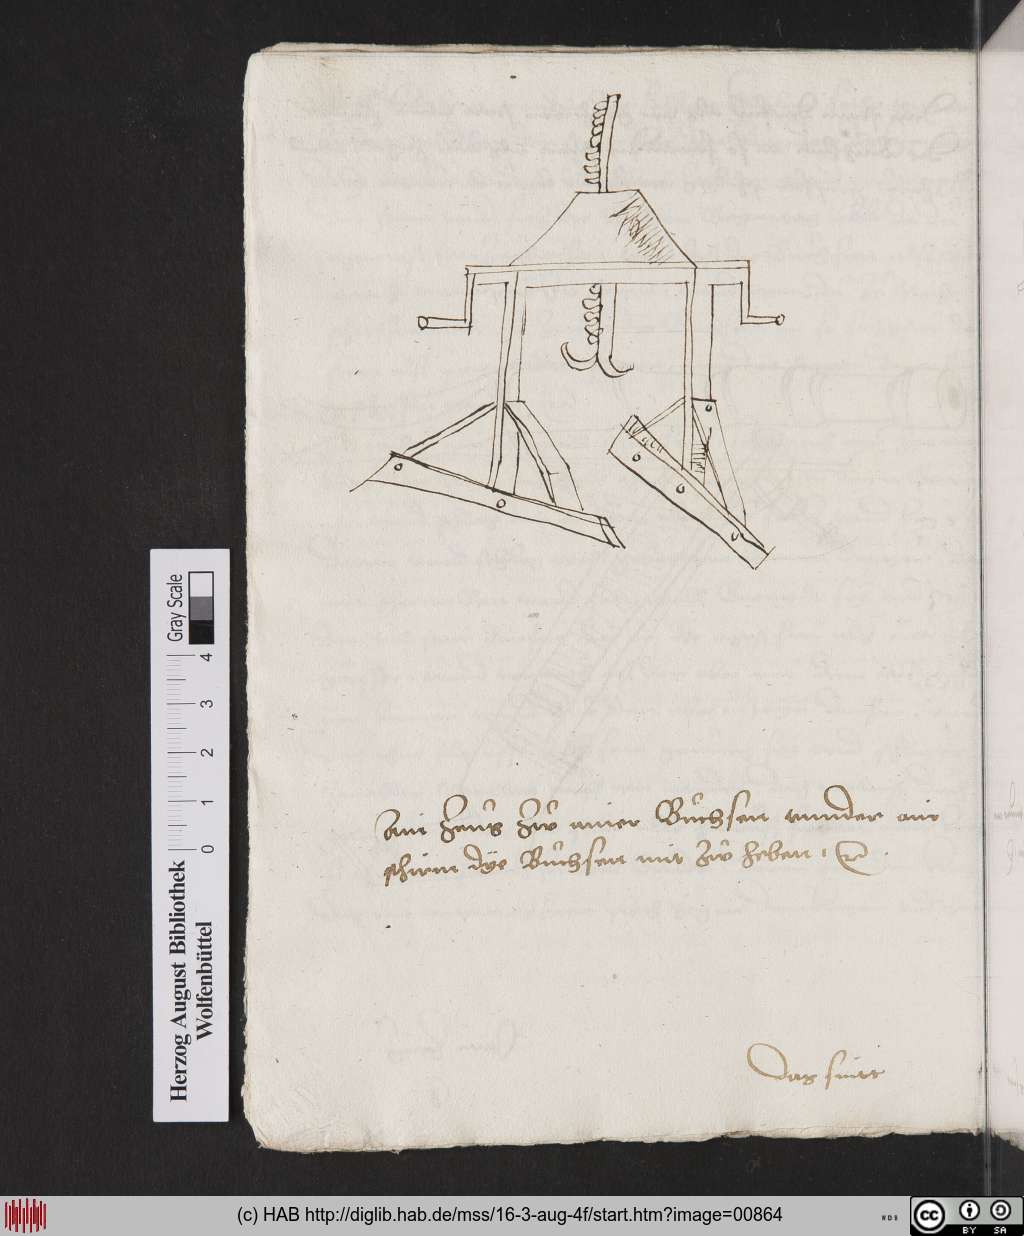 Ain Zeug zů ainer Bůchsen vnnder ain
schirm dye Bůchsen mit zů heben
das
Gray Scale
0 1 2 3 4
Herzog August Bibliothek
Wolfenbüttel
(c) HAB http://diglib.hab.de/mss/16-3-aug-4f/start.htm?image=00864
cc BY SA